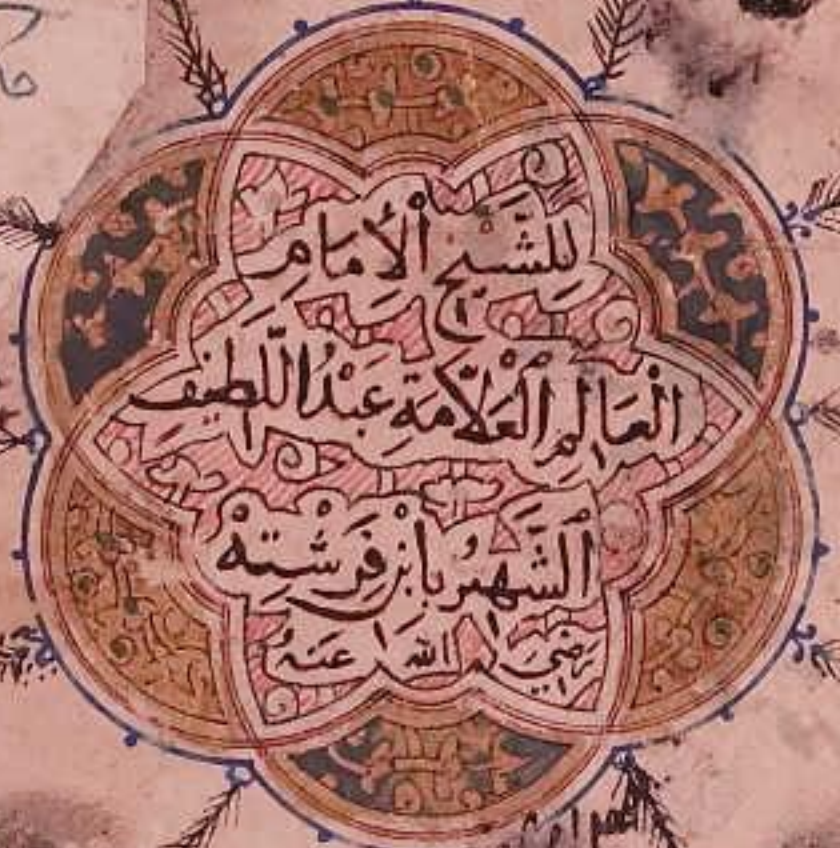 للشَّيخ الْأمَام
الْعَالِمِ الْعَلَّامَةِ عَبْدُ اللَّطِيف
الشَّهِيرُ بِابْنِ فَرَشْتَهْ
رَضِيَ الله عَنهُ